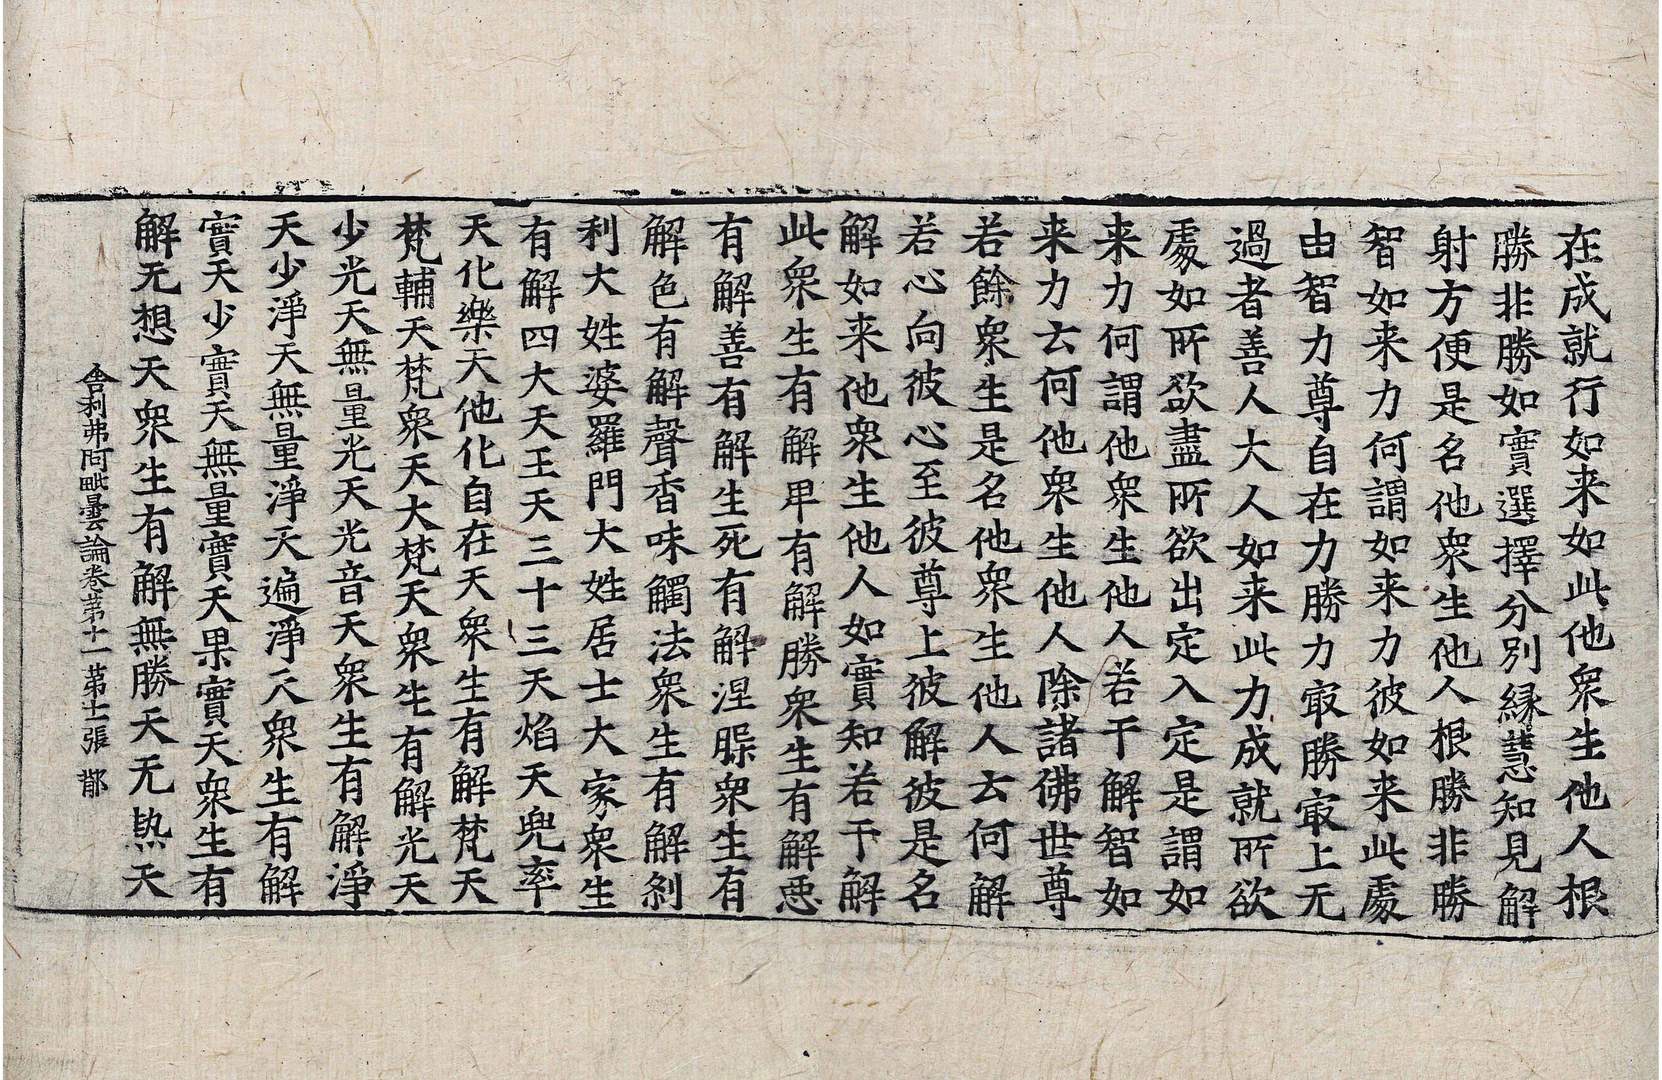 在成就行如来如此他衆生他人根
勝非勝如實選擇分別縁慧知見解
射方便是名他衆生他人根勝非勝
智如来力何謂如来力彼如来此處
由智力尊自在力勝力㝡勝㝡上无
過者善人大人如来此力成就所欲
處如所欲盡所欲出定入定是謂如
来力何謂他衆生他人若干解智如
来力云何他衆生他人除諸佛世尊
若餘衆生是名他衆生他人云何解
若心向彼心至彼尊上彼解彼是名
解如来他衆生他人如實知若干解
此衆生有解卑有解勝衆生有解惡
有解善有解生死有解涅槃衆生有
解色有解聲香味觸法衆生有解刹
利大姓婆羅門大姓居士大家衆生
有解四大天王天三十三天焰天兜率
天化樂天他化自在天衆生有解梵天
梵輔天梵衆天大梵天衆生有解光天
少光天無量光天光音天衆生有解淨
天少淨天無量淨天遍淨天衆生有解
實天少實天無量實天果實天衆生有
解无想天衆生有解無勝天无熱天
舍利弗阿毗曇論卷第十一 第十二張